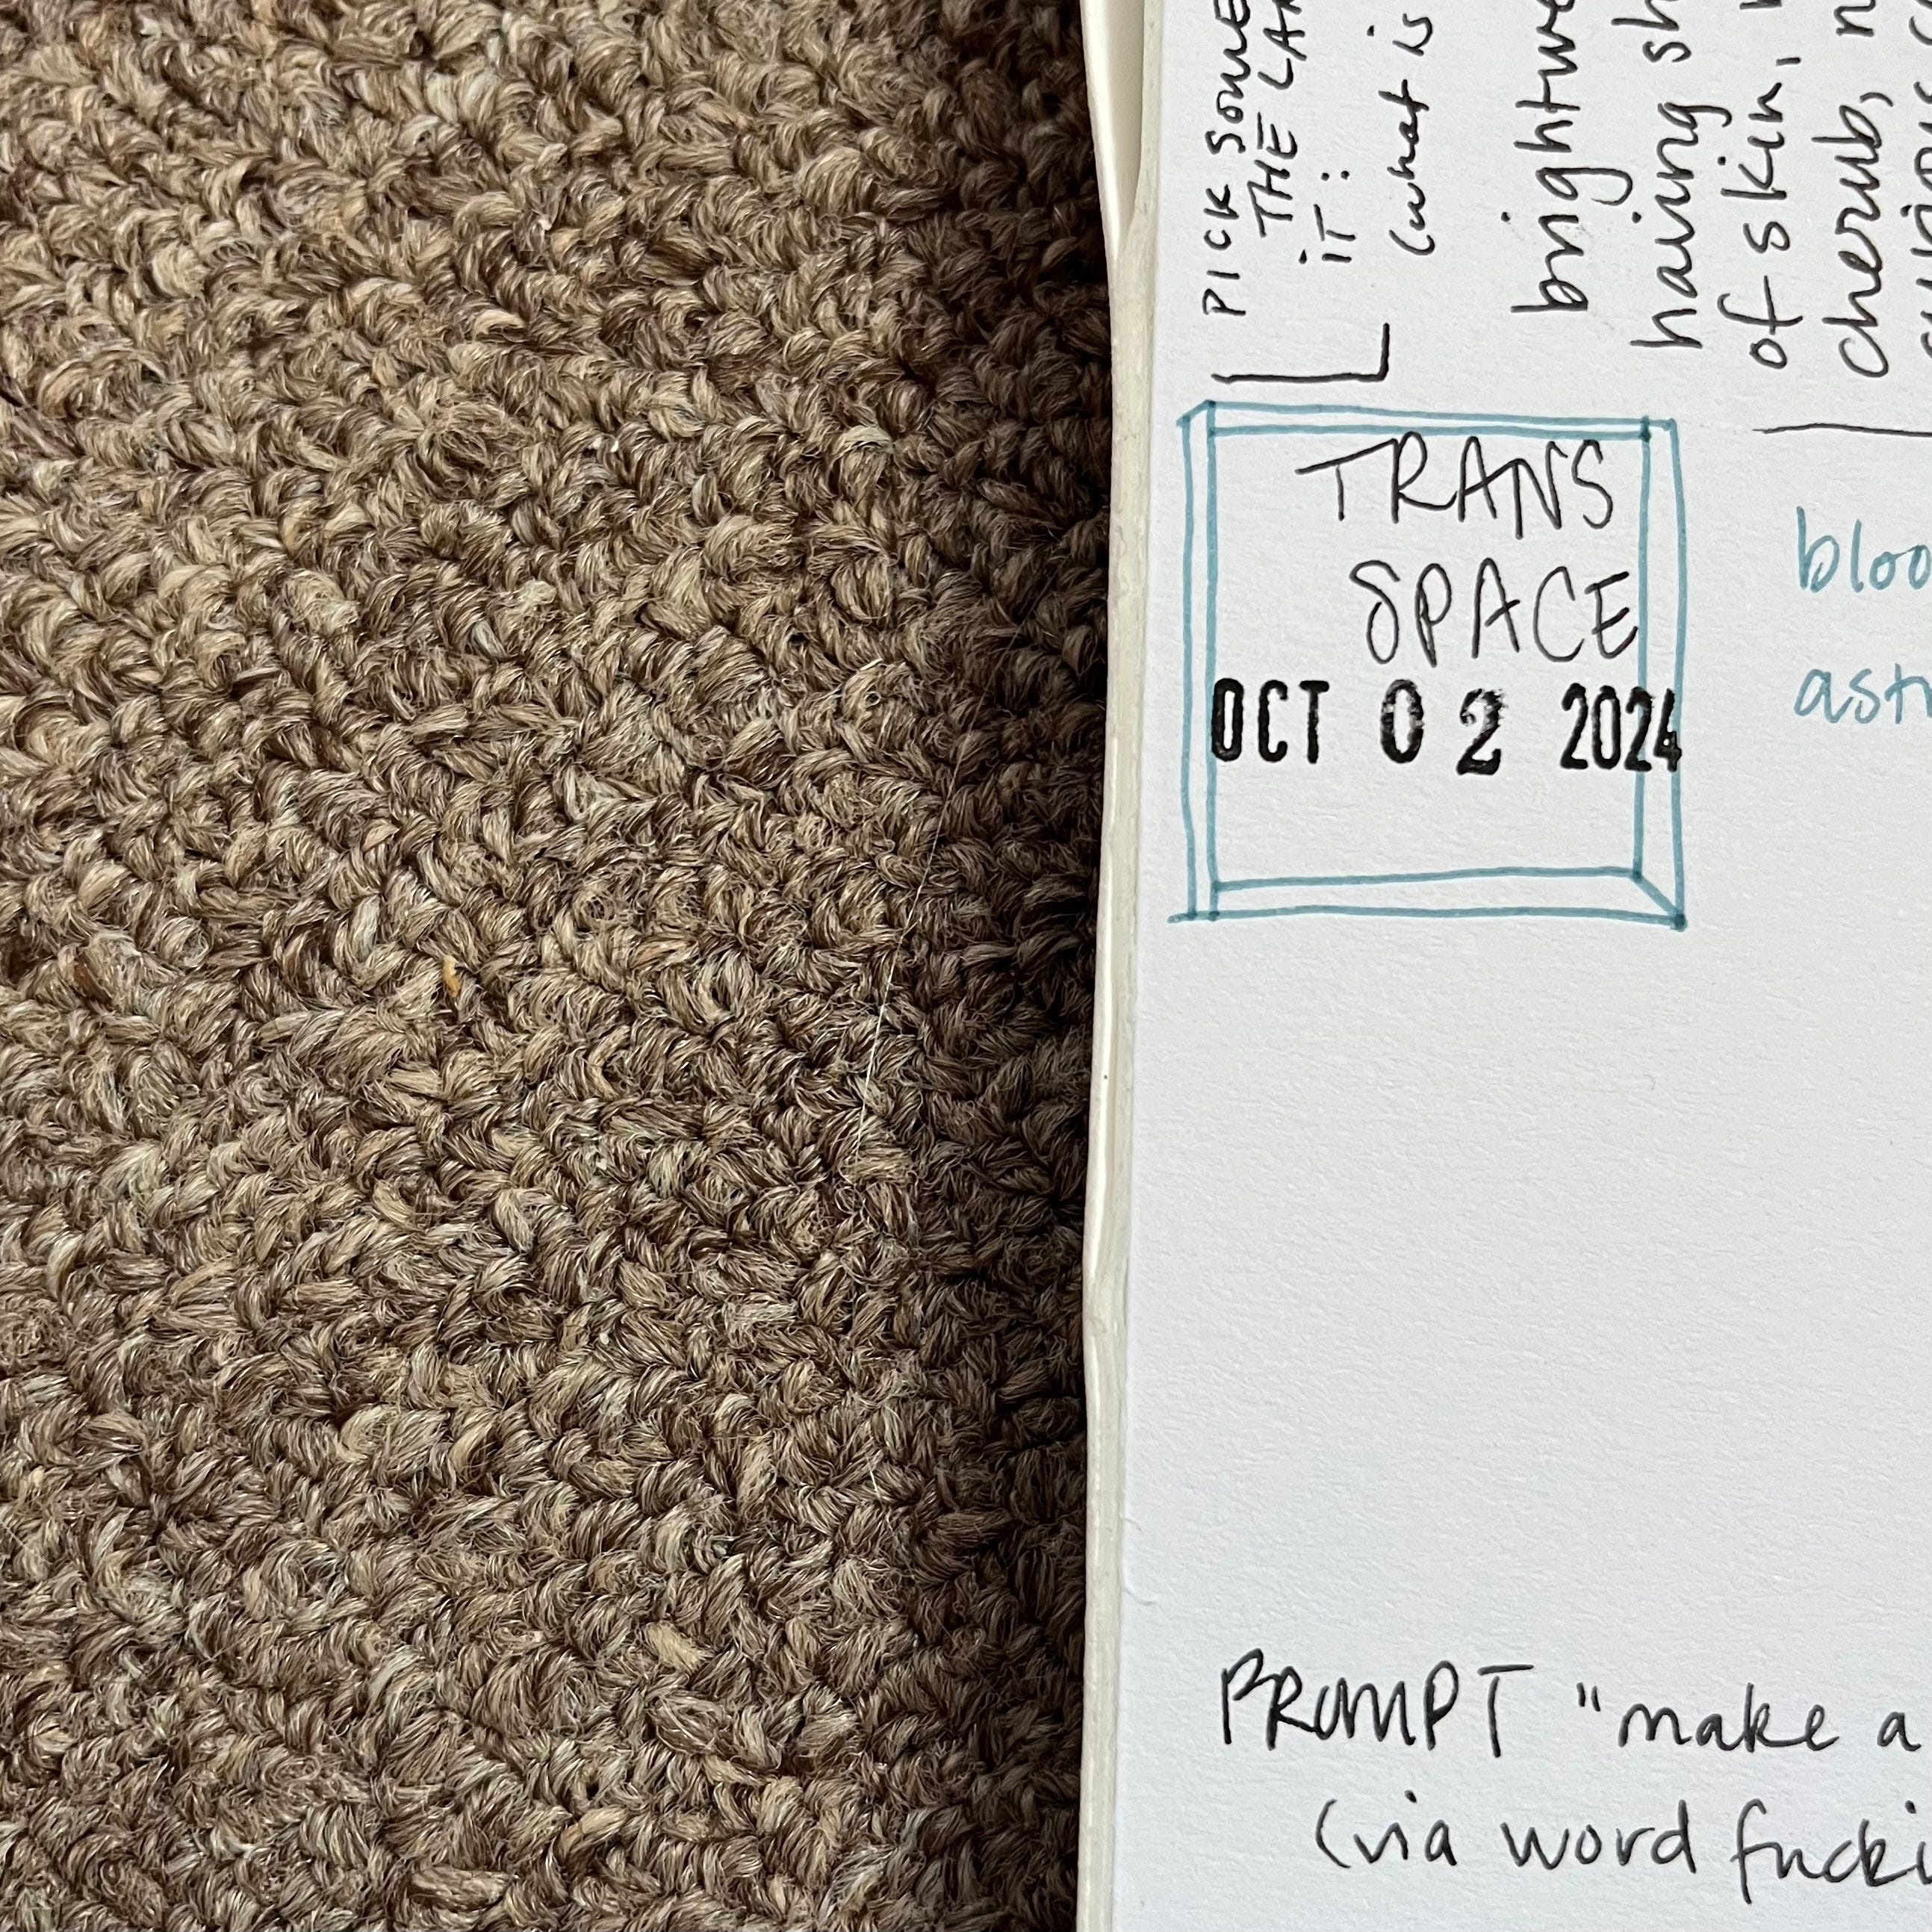 PICK SOME
THE
IT:
(what is
brightwe
having sh
of skin,
cherub, n
TRANS
SPACE
OCT 02 2024
bloo
ast
PROMPT "make a
(via word fucki